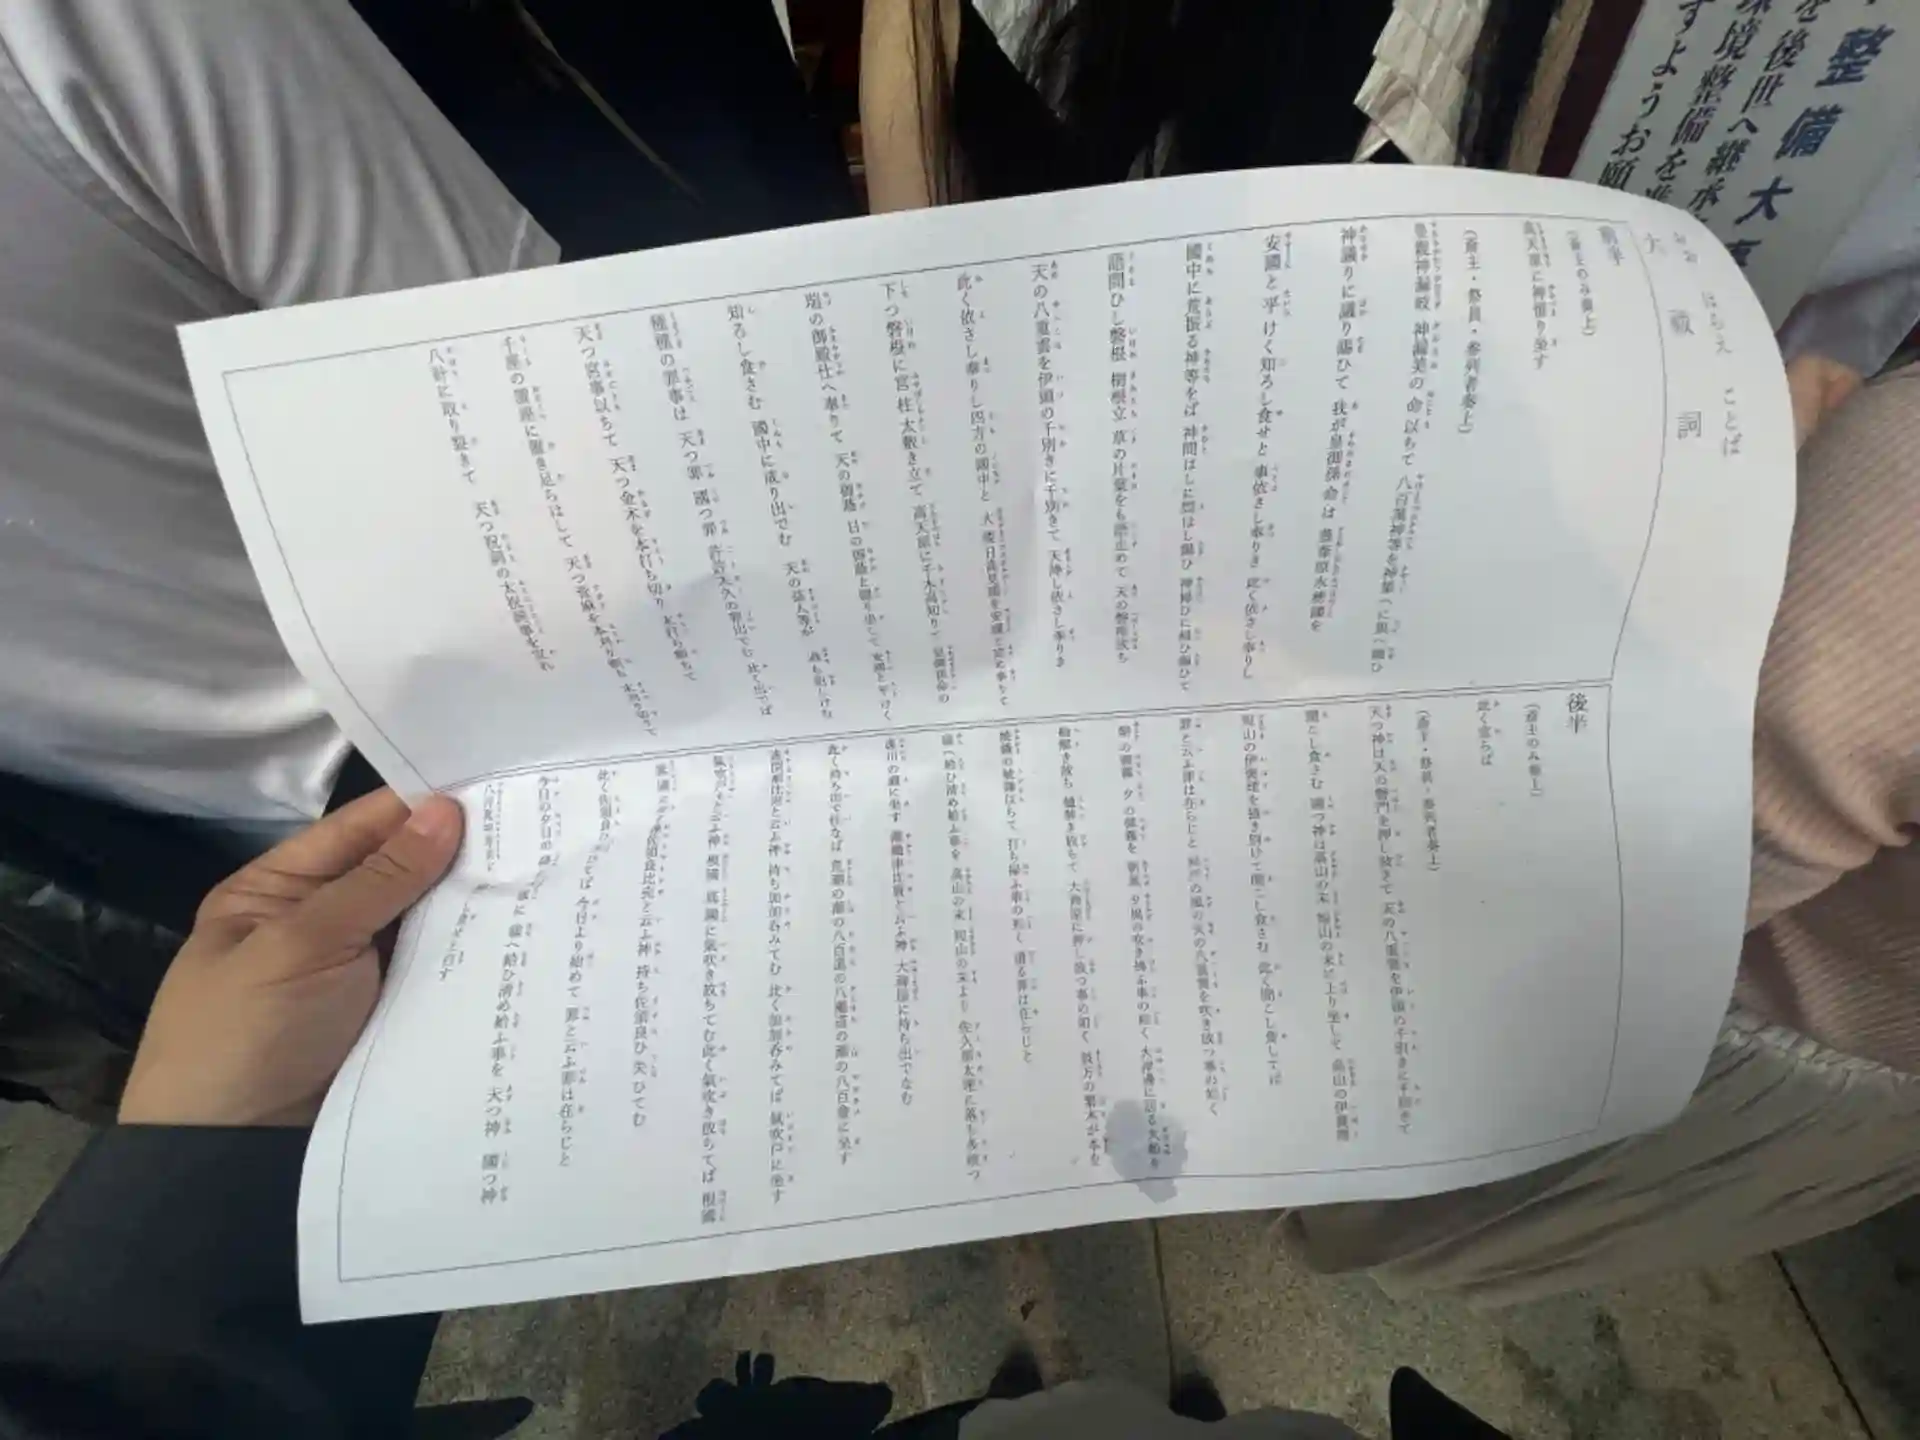 整備大
を後世へ継承
環境整備を進
すようお願
大祓詞
おお はらえ ことば
前半
（斎主のみ奏上）
高天原に神留り坐す
（斎主・祭員・参列者奏上）
皇親神漏岐 神漏美の命以ちて 八百萬神等を神集へに集へ賜ひ
神議りに議り賜ひて 我が皇御孫命は 豊葦原水穂國を
安國と平けく知ろし食せと 事依さし奉りき 此く依さし奉りし
國中に荒振る神等をば 神問はしに問はし賜ひ 神掃ひに掃ひ賜ひて
語問ひし磐根 樹根立 草の片葉をも語止めて 天の磐座放ち
天の八重雲を伊頭の千別きに千別きて 天降し依さし奉りき
此く依さし奉りし四方の國中と 大倭日高見國を安國と定め奉りて
下つ磐根に宮柱太敷き立て 高天原に千木高知りて 皇御孫命の
瑞の御殿仕へ奉りて 天の御蔭 日の御蔭と隠り坐して 安國と平けく
知ろし食さむ 國中に成り出でむ 天の益人等が 過ち犯しけむ
種種の罪事は 天つ罪 國つ罪 許許太久の罪出でむ 此く出でば
天つ宮事以ちて 天つ金木を本打ち切り 末打ち断ちて
千座の置座に置き足らはして 天つ菅麻を本刈り断ち 末刈り切りて
八針に取り裂きて 天つ祝詞の太祝詞事を宣れ
後半
（斎主のみ奏上）
此く宣らば
（斎主・祭員・参列者奏上）
天つ神は天の磐門を押し披きて 天の八重雲を伊頭の千別きに千別きて
聞こし食さむ 國つ神は高山の末 短山の末に上り坐して 高山の伊褒理
短山の伊褒理を掻き別けて聞こし食さむ 此く聞こし食してば
罪と云ふ罪は在らじと 科戸の風の天の八重雲を吹き放つ事の如く
朝の御霧 夕の御霧を 朝風 夕風の吹き掃ふ事の如く 大津邊に居る大船を
舳解き放ち 艫解き放ちて 大海原に押し放つ事の如く 彼方の繁木が本を
焼鎌の敏鎌以ちて 打ち掃ふ事の如く 遺る罪は在らじと
祓へ給ひ清め給ふ事を 高山の末 短山の末より 佐久那太理に落ち多岐つ
速川の瀬に坐す 瀬織津比賣と云ふ神 大海原に持ち出でなむ
此く持ち出で往なば 荒潮の潮の八百道の八潮道の潮の八百會に坐す
速開都比賣と云ふ神 持ち加加呑みてむ 此く加加呑みてば 氣吹戸に坐す
氣吹戸主と云ふ神 根國 底國に氣吹き放ちてむ 此く氣吹き放ちてば 根國
底國に 佐須良比売と云ふ神 持ち佐須良ひ失ひてむ
此く佐須良 てば 今日より始めて 罪と云ふ罪は在らじと
今日の夕日の に 祓へ給ひ清め給ふ事を 天つ神 國つ神
八百萬神等共に 食せと白す